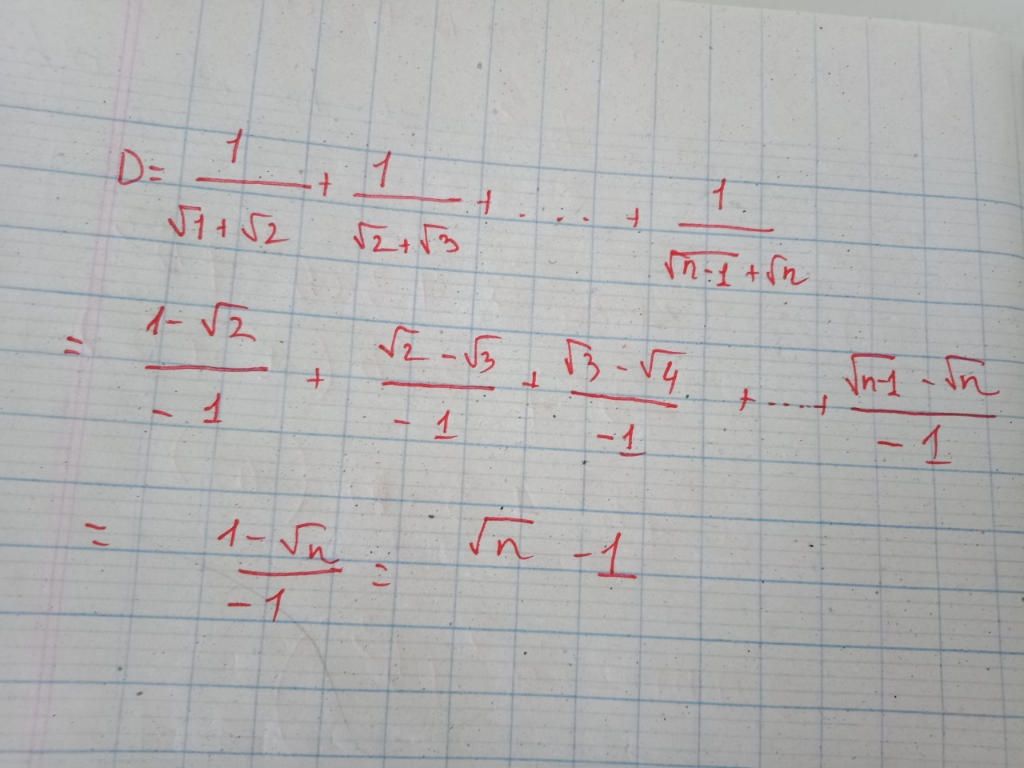 D = 1/(√1+√2) + 1/(√2+√3) + .... + 1/(√(n-1)+√n)
= (1-√2)/(-1) + (√2-√3)/(-1) + (√3-√4)/(-1) + ....+ (√(n-1)-√n)/(-1)
= (1-√n)/(-1) = √n -1